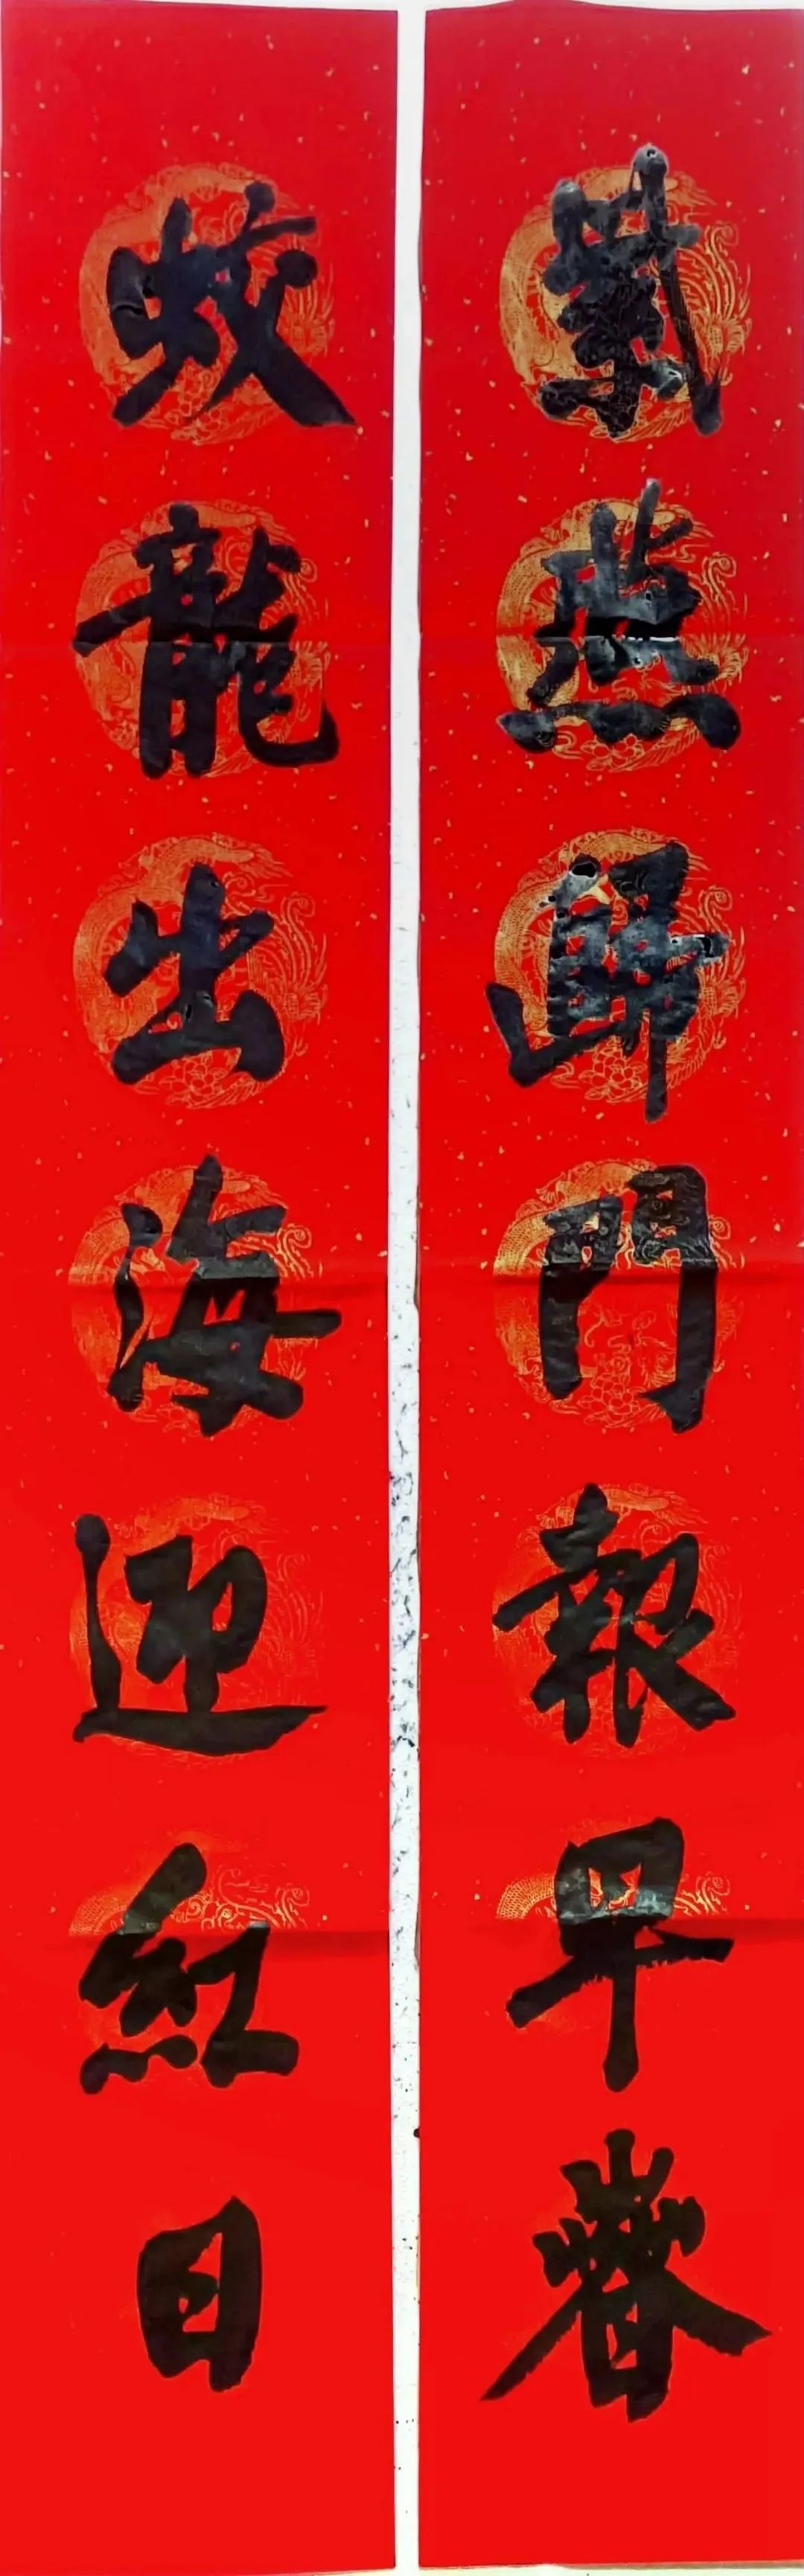 紫燕歸門報早春
蛟龍出海迎紅日